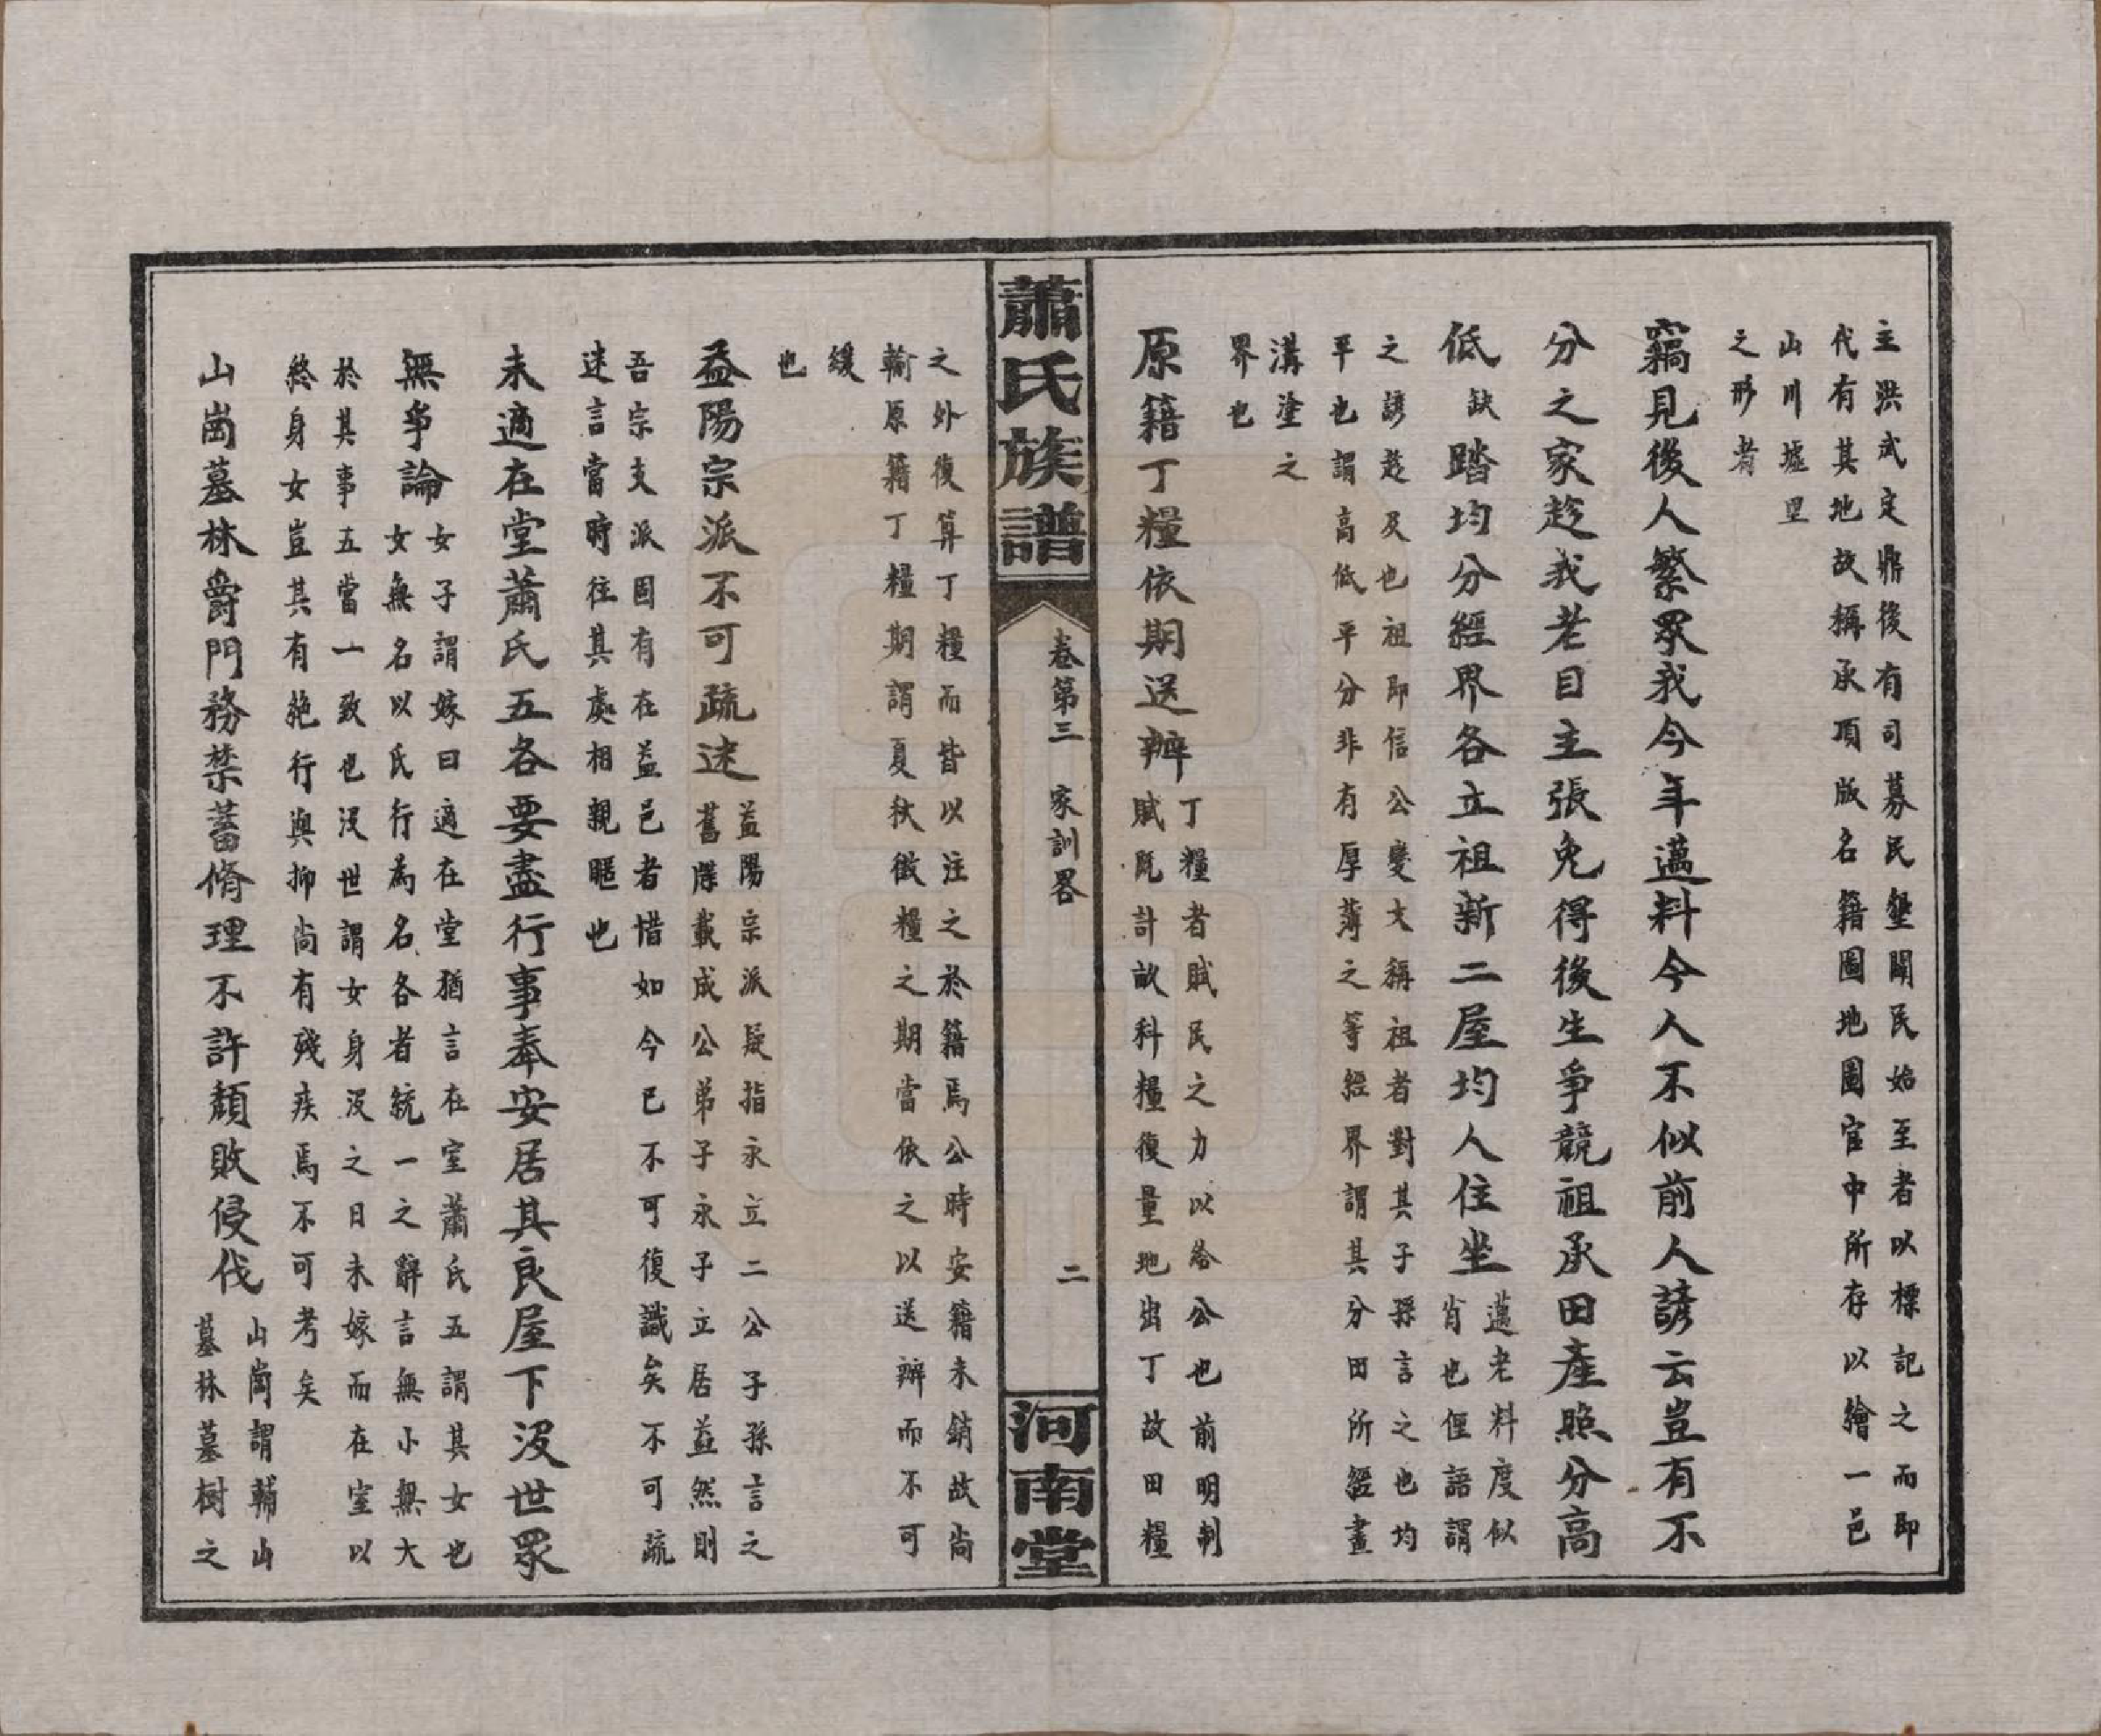 主洪武定鼎後有司募民墾闢民始至者以標記之而即
代有其地故稱承頂版名籍圖地圖官中所存以繪一邑
山川墟里
之形者
竊見後人繁眾我今年邁料今人不似前人諺云豈有不
分之家趁我老目主張免得後生爭競祖承田產照分高
低缺踏均分經界各立祖新二屋均人住坐
邁老料度似
肖也俚語謂
之諺趁及也祖即信公變文稱祖者對其子孫言之也均
平也謂高低平分非有厚薄之等經界謂其分田所經畫
溝塗之
界也
原籍丁糧依期送辦
丁糧者賦民之力以給公也前明制
賦既計畝科糧復量地出丁故田糧
蕭氏族譜
卷第三 家訓畧
二
河南堂
之外復算丁糧而皆以注之於籍焉公時安籍未銷故尚
輸原籍丁糧期謂夏秋徵糧之期當依之以送辦而不可
緩
也
益陽宗派不可疏迷
益陽宗派疑指永立二公子孫言之
舊牒載成公弟子永子立居益然則
吾宗支派固有在益邑者惜如今已不可復識矣不可疏
迷言當時往其處相親暱也
未適在堂蕭氏五各要盡行事奉安居其良屋下沒世眾
無爭論
女子謂嫁曰適在堂猶言在室蕭氏五謂其女也
女無名以氏行為名各者統一之辭言無小無大
於其事五當一致也沒世謂女身沒之日未嫁而在室以
終身女豈其有絶行與抑尚有殘疾焉不可考矣
山崗墓林爵門務禁蓄脩理不許頹敗侵伐
山崗謂輔山
墓林墓樹之